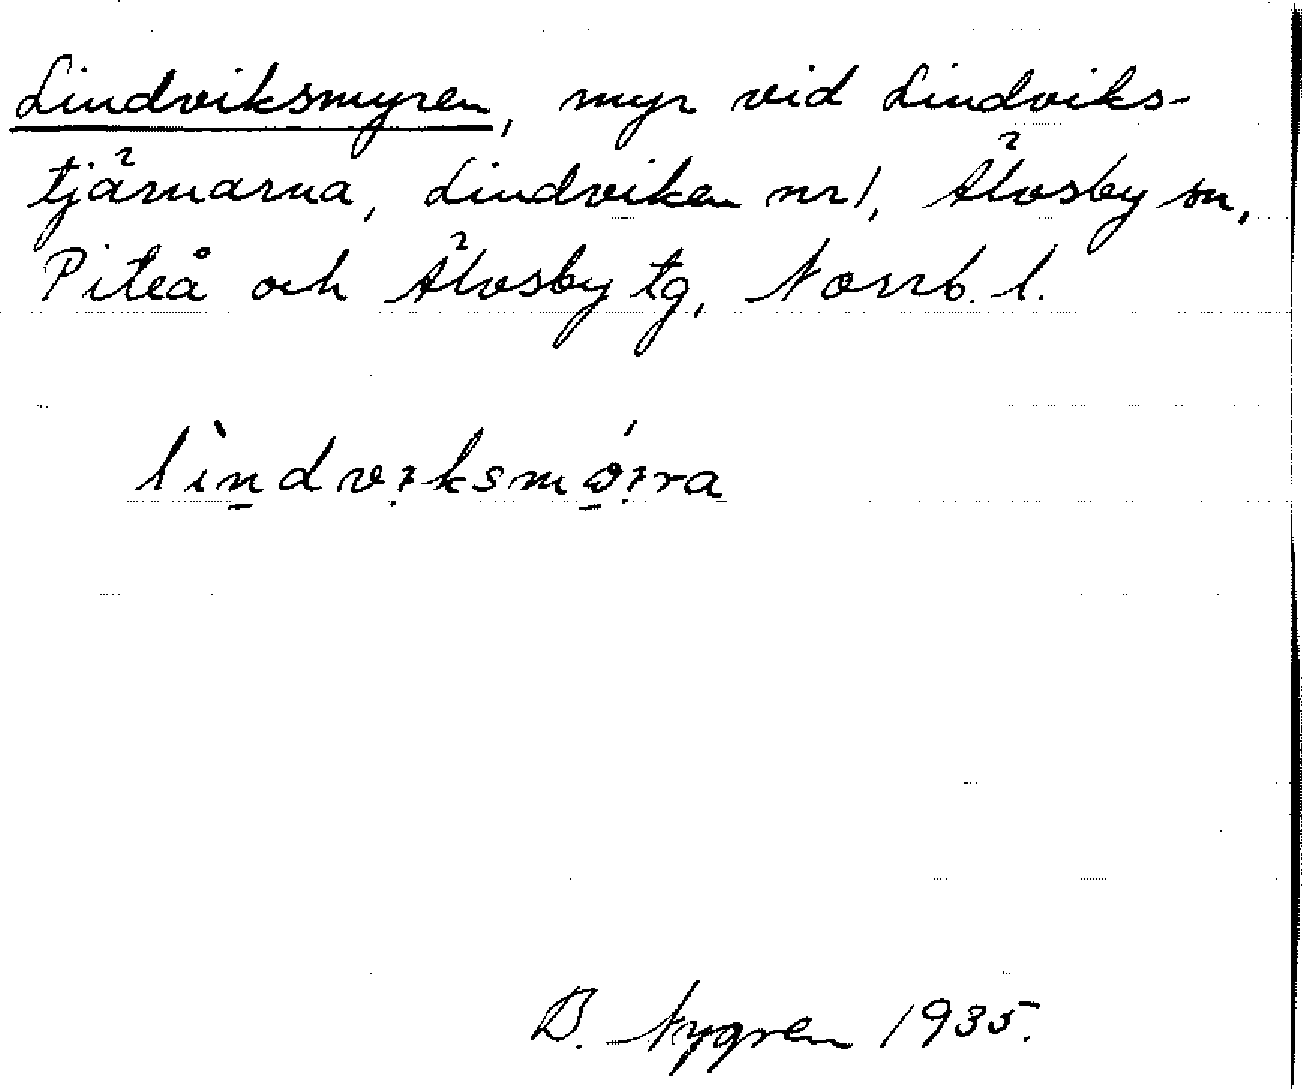 Lindviksmyren, myr vid Lindviks-
tjärnarna, Lindviken nr 1, Älvsby sn,
Piteå och Älvsby tg, Norrb. l.
B. Nygren 1935.